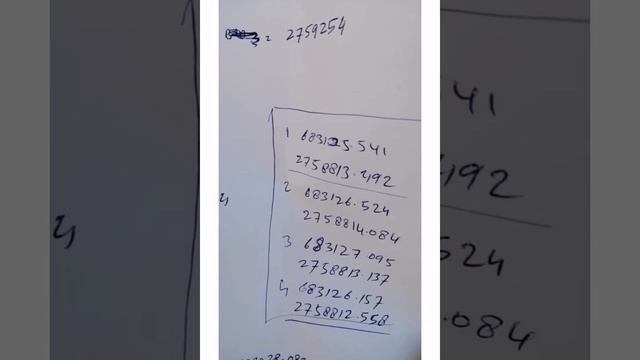 = 2759254
1 683125.541
2758813.492
2 683126.524
2758814.084
3 683127.095
2758813.137
4 683126.157
2758812.558